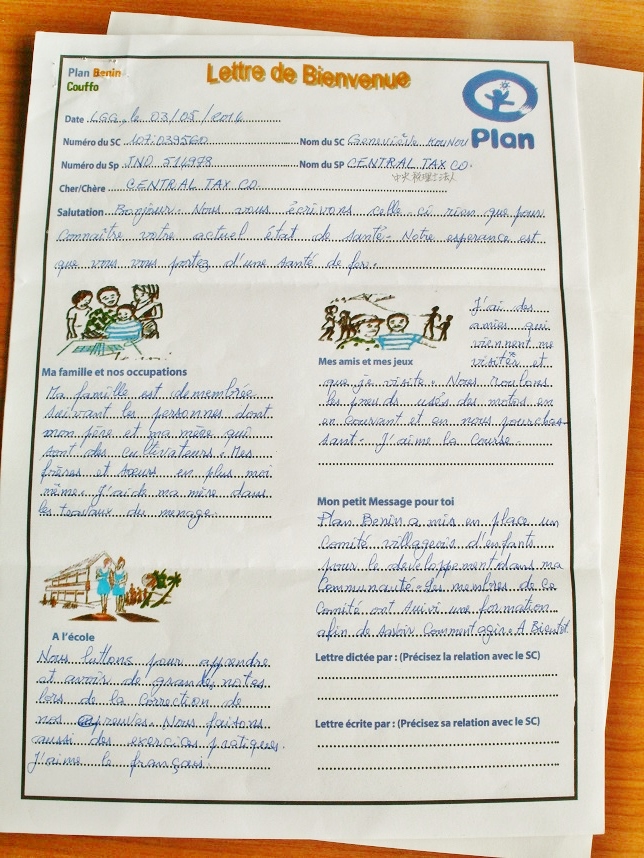 Plan Benin
Couffo
Lettre de Bienvenue
Plan
Date LGG, le 03/05/2016
Numéro du SC 107.039560 Nom du SC Geneviève HOUNOU
Numéro du Sp JNO 511978 Nom du SP CENTRAL TAX CO.
Cher/Chère CENTRAL TAX CO.
中央税理士法人
Salutation Bonjour. Nous vous écrivons celle-ci rien que pour
connaître votre actuel état de santé. Notre esperance est
que vous vous portez d'une santé de fer.
Ma famille et nos occupations
Ma famille est demembrée
suivant les personnes dont
mon père et ma mère qui
sont des cultivateurs. Mes
frères et sœurs en plus moi
même. J'aide ma mère dans
les travaux du menage.
A l'école
Nous luttons pour apprendre
et avoir de grandes notes
lors de la correction de
nos epreuves. Nous faisons
aussi des exercices pratiques.
J'aime le français.
Mes amis et mes jeux
J'ai des
amies qui
viennent me
visiter et
que je visite. Nous roulons
les pneus usés des motos en
en courant et en nous pourchas-
sant. J'aime la course.
Mon petit Message pour toi
Plan Benin a mis en place un
Comité villageois d'enfants
pour le developpement dans ma
Communauté. Les membres de ce
Comité ont suivi une formation
afin de savoir comment agir. A Bientôt.
Lettre dictée par : (Précisez la relation avec le SC)
Lettre écrite par : (Précisez sa relation avec le SC)